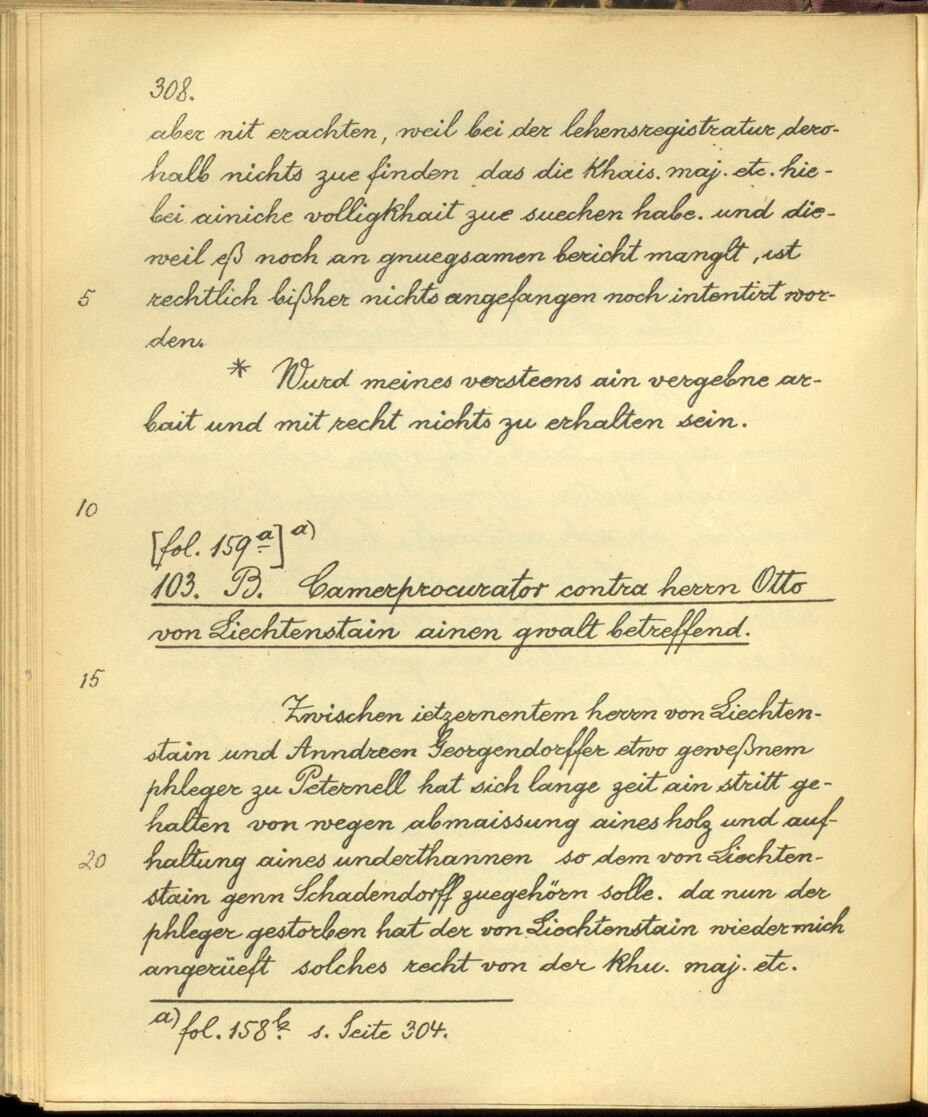 308.
aber nit erachten, weil bei der lehensregistratur dero-
halb nichts zue finden das die Khais. maj. etc. hie-
bei ainiche volligkhait zue suechen habe. und die-
weil eß noch an gnuegsamen bericht manglt, ist
5 rechtlich bißher nichts angefangen noch intentirt wor-
den.
* Wurd meines versteens ain vergebne ar-
bait und mit recht nichts zu erhalten sein.
10
[fol. 159a] a)
103. B. Camerprocurator contra herrn Otto
von Liechtenstain ainen gwalt betreffend.
15
Zwischen ietzernentem herrn von Liechten-
stain und Anndreen Georgendorffer etwo geweßnem
phleger zu Peternell hat sich lange zeit ain stritt ge-
halten von wegen abmaissung aines holz und auf-
20 haltung aines underthannen so dem von Liechten-
stain genn Schadendorff zuegehörn solle. da nun der
phleger gestorben hat der von Liechtenstain wieder mich
angerüeft solches recht von der Khu. maj. etc.
a) fol. 158b. s. Seite 304.